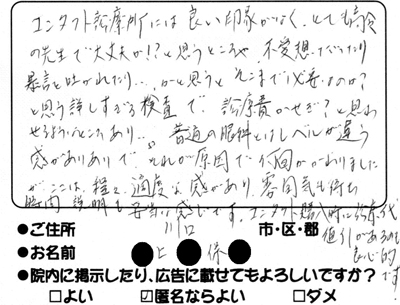 コンタクト診療所には良い印象がなく、とても高令
の先生で大丈夫か!?と思うところや、不愛想だったり
暴言を吐かれたり… かと思うと そこまで必要なのか?
と思う詳しすぎる検査で 診療費かせぎ?と思わ
せるようなところあり… 普通の眼科とはレベルが違う
感がありありで… それが原因で 回かわりました
が、ここは、程々、適度な感があり、雰囲気も
説明も 感じです。コンタクト購入時に
値引があるのも
良心的
です
●ご住所
市・区・郡
●お名前
●院内に掲示したり、広告に載せてもよろしいですか?
□よい ☑匿名ならよい □ダメ